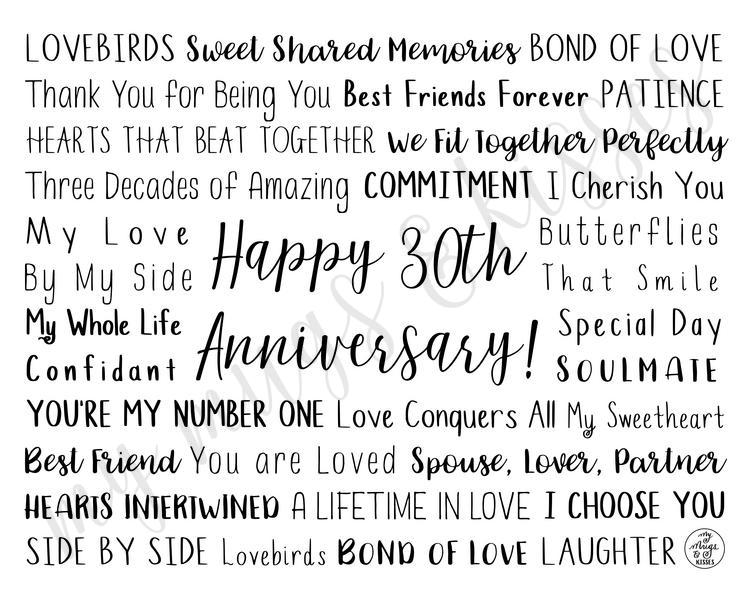 LOVEBIRDS Sweet Shared Memories BOND OF LOVE
Thank You for Being You Best Friends Forever PATIENCE
HEARTS THAT BEAT TOGETHER We Fit Together Perfectly
Three Decades of Amazing COMMITMENT I Cherish You
My Love
By My Side
Happy 30th
Butterflies
That Smile
My Whole Life
Confidant
Anniversary!
Special Day
SOULMATE
YOU'RE MY NUMBER ONE Love Conquers All My Sweetheart
Best Friend You are Loved Spouse, Lover, Partner
HEARTS INTERTWINED A LIFETIME IN LOVE I CHOOSE YOU
SIDE BY SIDE Lovebirds BOND OF LOVE LAUGHTER
my
Mugs
&
KISSES
my mugs & kisses